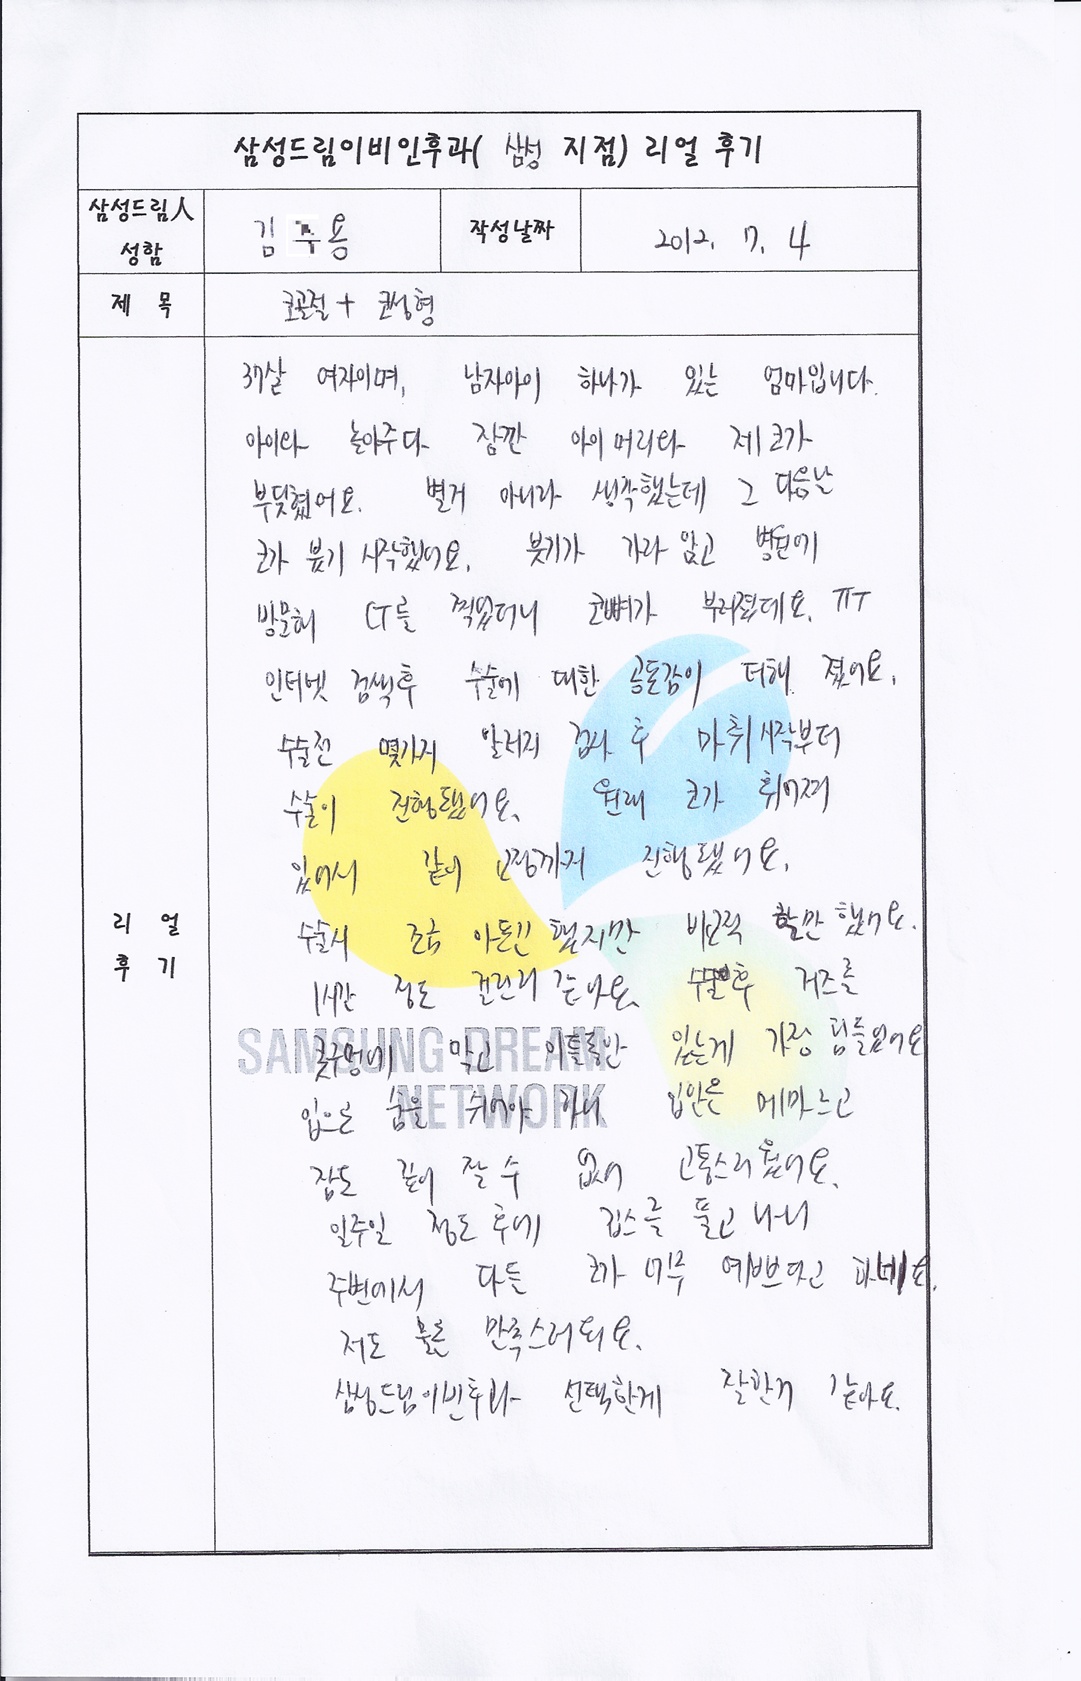 삼성드림이비인후과( 삼성 지점) 리얼 후기
삼성드림人
성함
김 용
작성날짜
2012. 7. 4
제 목
코골절 + 코성형
리 얼
후 기
37살 여자이며, 남자아이 하나가 있는 엄마입니다.
아이와 놀아주다 잠깐 아이 머리와 제 코가
부딪혔어요. 별거 아니라 생각했는데 그 다음날
코가 붓기 시작했어요. 붓기가 가라 앉고 병원에
방문해 CT를 찍었더니 코뼈가 부러졌데요. ㅠㅜ
인터넷 검색후 수술에 대한 공포감이 더해 졌어요.
수술전 몇가지 알러지 검사 후 마취 시작부터
수술이 진행됐어요. 원래 코가 휘어져
있어서 같이 교정까지 진행됐어요.
수술시 조금 아프긴 했지만 비교적 할만 했어요.
1시간 정도 걸린거 같아요. 수술후 거즈를
콧구멍에 막고 이틀동안 있는게 가장 힘들었어요
입으로 숨을 쉬어야 하니 입안은 메마르고
잠도 깊이 잘 수 없어 고통스러웠어요.
일주일 정도 후에 깁스를 풀고 나니
주변에서 다들 코가 너무 예쁘다고 하네요.
저도 물론 만족스러워요.
삼성드림이비인후과 선택한게 잘한거 같아요.
SAMSUNG DREAM
NETWORK